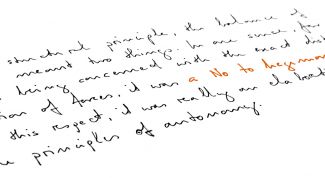 structural principle, the balance of
meant two things. In one sense, for
being concerned with the exact dist
tion of forces, it was a No to hegemon
this respect, it was really an elaborati
principles of autonomy.